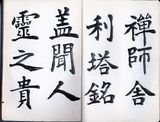 禪師舍
利塔銘
盖聞人
靈之貴